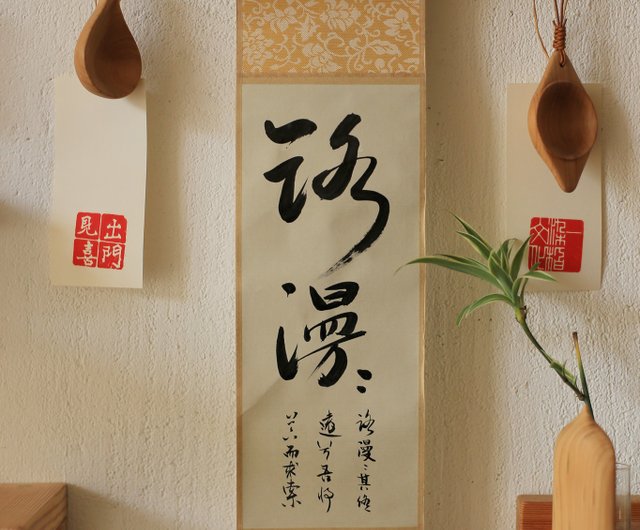 路漫〻
路漫〻其修
遠兮吾将
上下而求索
出門見喜